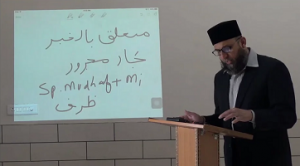 متعلق بالخبر
جار مجرور
Sp. Mudhaf + Mi
ظرف